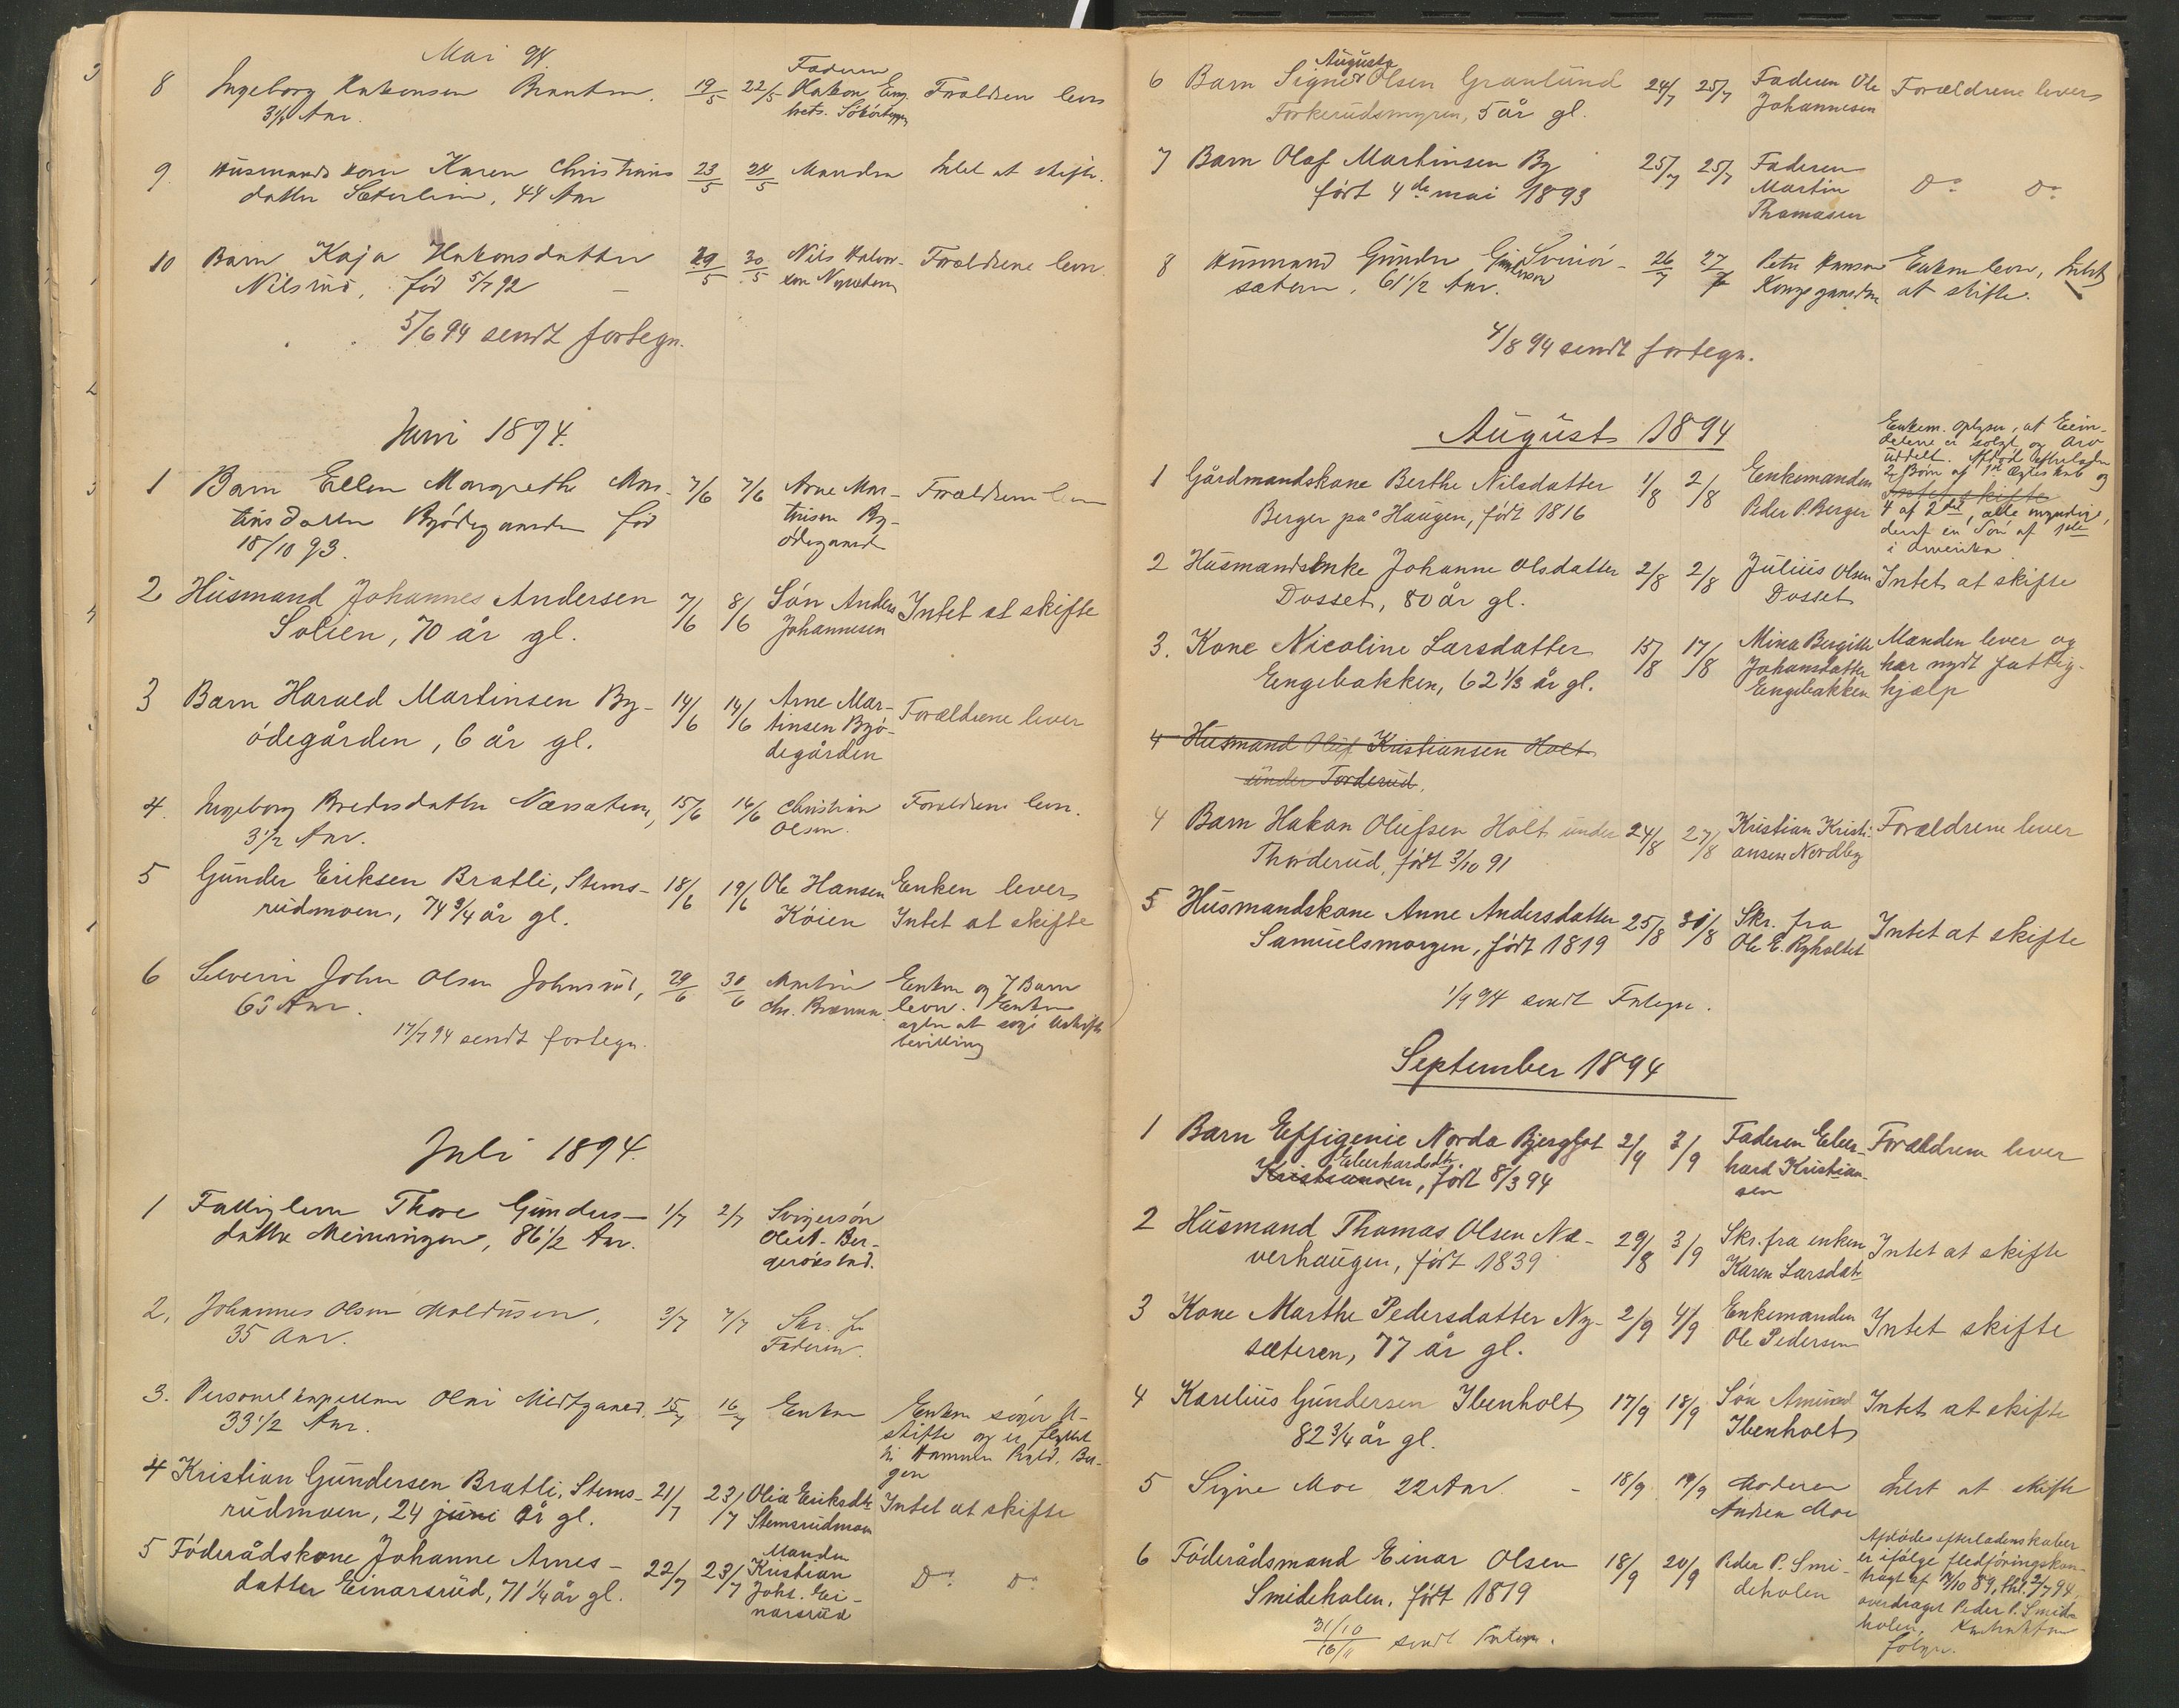 Mai 94.
8 Ingeborg Hakensen 19/5 22/5 Faderen Hakon Forældrene lever
3 1/4 Aar.
9. Husmands kone Karen Christians 23/5 24/5 Manden Intet at skifte.
datter Sæterlien, 44 Aar
10 Barn Kaja Hakonsdatter 29/5 30/5 Nils Halvor- Forældrene lever.
Nilsrud, fød 5/7 92 – sen
5/6 94 sendt fortegn.
Juni 1894.
1 Barn Ellen Margrethe Mar- 7/6 7/6 Arne Mar- Forældrene lever
tinsdatter Byødegaarden fød tinsen By-
18/10 93. ødegaard
2 Husmand Johannes Andersen 7/6 8/6 Søn Anders Intet at skifte
Solien, 70 år gl. Johannesen
3 Barn Harald Martinsen By- 14/6 14/6 Arne Mar- Forældrene lever
ødegården, 6 år gl. tinsen Byø-
degården
4. Ingeborg Bredesdatter 15/6 16/6 Christian Forældrene lever.
3 1/2 Aar. Olsen.
5 Gunder Eriksen Bratli, Stems- 18/6 19/6 Ole Hansen Enken lever
rudmoen, 74 3/4 år gl. Køien Intet at skifte
6 Severin John Olsen Johnsrud, 29/6 30/6 Martin Enken og 7 Barn
65 Aar. Chr. lever. Enken
agter at søge Uskifte
bevilling
17/7 94 sendt fortegn.
Juli 1894.
1 Fattiglem Thore Gunders- 1/7 2/7 Svigersøn
datter Meiningen, 86 1/2 Aar. Ber-
2. Johannes Olsen 3/7 7/7 Skr. fr
35 Aar. Faderen.
3. Personelkapellan Olai Midtgaard. 15/7 16/7 Enken Enken søger U-
33 1/2 Aar. skifte og er flyttet
til Hammer Ber-
gen
4 Kristian Gundersen Bratli, Stems- 21/7 23/7 Olia Eriksdtr Intet at skifte
rudmoen, 24 juni år gl. Stemsrudmoen
5 Føderådskone Johanne Arnes- 22/7 23/7 Manden Kristian Do. Do.
datter Einarsrud, 71 1/4 år gl. Johs. Ei-
narsrud
6 Barn Signe Augusta Olsen Granlund 24/7 25/7 Faderen Ole Forældrene lever
Forkerudsmyren, 5 år gl. Johannesen
7 Barn Olaf Martinsen By 25/7 25/7 Faderen Do. Do.
født 4de mai 1893 Martin
Thomasen
8 Husmand Gunder Gundersen 26/7 27/7 Peter Hansen Enken lever, Intet
sætern, 61 1/2 Aar. at skifte.
4/8 94 sendt fortegn.
August 1894
Enkem. oplyser, at Eien-
delene er solgt og Arv
uddelt.
1 Gårdmandskone Berthe Nilsdatter 1/8 2/8 Enkemanden 2 Børn af 1ste Ægteskab og
Intet skifte
Berger på Haugen, født 1816 Peder P. Berger 4 af 2det, alle myndige,
deraf en Søn af 1ste
i Amerika
2 Husmandsenke Johanne Olsdatter 2/8 2/8 Julius Olsen Intet at skifte
Dosset, 80 år gl. Dosset
3. Kone Nicoline Larsdatter 15/8 17/8 Mina Bergitte Manden lever og
Engebakken, 62 1/3 år gl. Johansdatter har nydt fattig-
Engebakken hjælp
4 Husmand Oluf Kristiansen Holt
under Torderud.
4 Barn Hakon Olufsen Holt under 24/8 27/8 Kristian Kristi- Forældrene lever
Thorderud, født 3/10 91 ansen Nordby
5 Husmandskone Anne Andersdatter 25/8 31/8 Skr. fra Intet at skifte
Samuelsmorgen, født 1819 Ole E. Ryholtet
1/9 94 sendt Fortegn.
September 1894
1 Barn Effigenie Norda Bjergfot 2/9 3/9 Faderen Eber- Forældrene lever
Kristiansen Eberhardsdtr., født 8/3 94 hard Kristian-
sen
2 Husmand Thomas Olsen Næ- 29/8 3/9 Skr. fra enken Intet at skifte
verhaugen, født 1839 Karen Larsdatr
3 Kone Marthe Pedersdatter Ny- 2/9 4/9 Enkemanden Intet skifte
sæteren, 77 år gl. Ole Pedersen
4 Karelius Gundersen Ibenholt 17/9 18/9 Søn Amund Intet at skifte
82 3/4 år gl. Ibenholt
5 Signe Moe 22 Aar. - 18/9 19/9 Moderen Intet at skifte
Andrea Moe
6 Føderådsmand Einar Olsen 18/9 20/9 Peder P. Smi- Afdødes efterladenskaber
er ifølge fledføringskon-
Smideholen, født 1819 deholen trakt af /10 89, thl. 2/7 94,
overdraget Peder P. Smide-
holen. Kontrakten
følger.
31/10 16/11 sendt Fortegn.